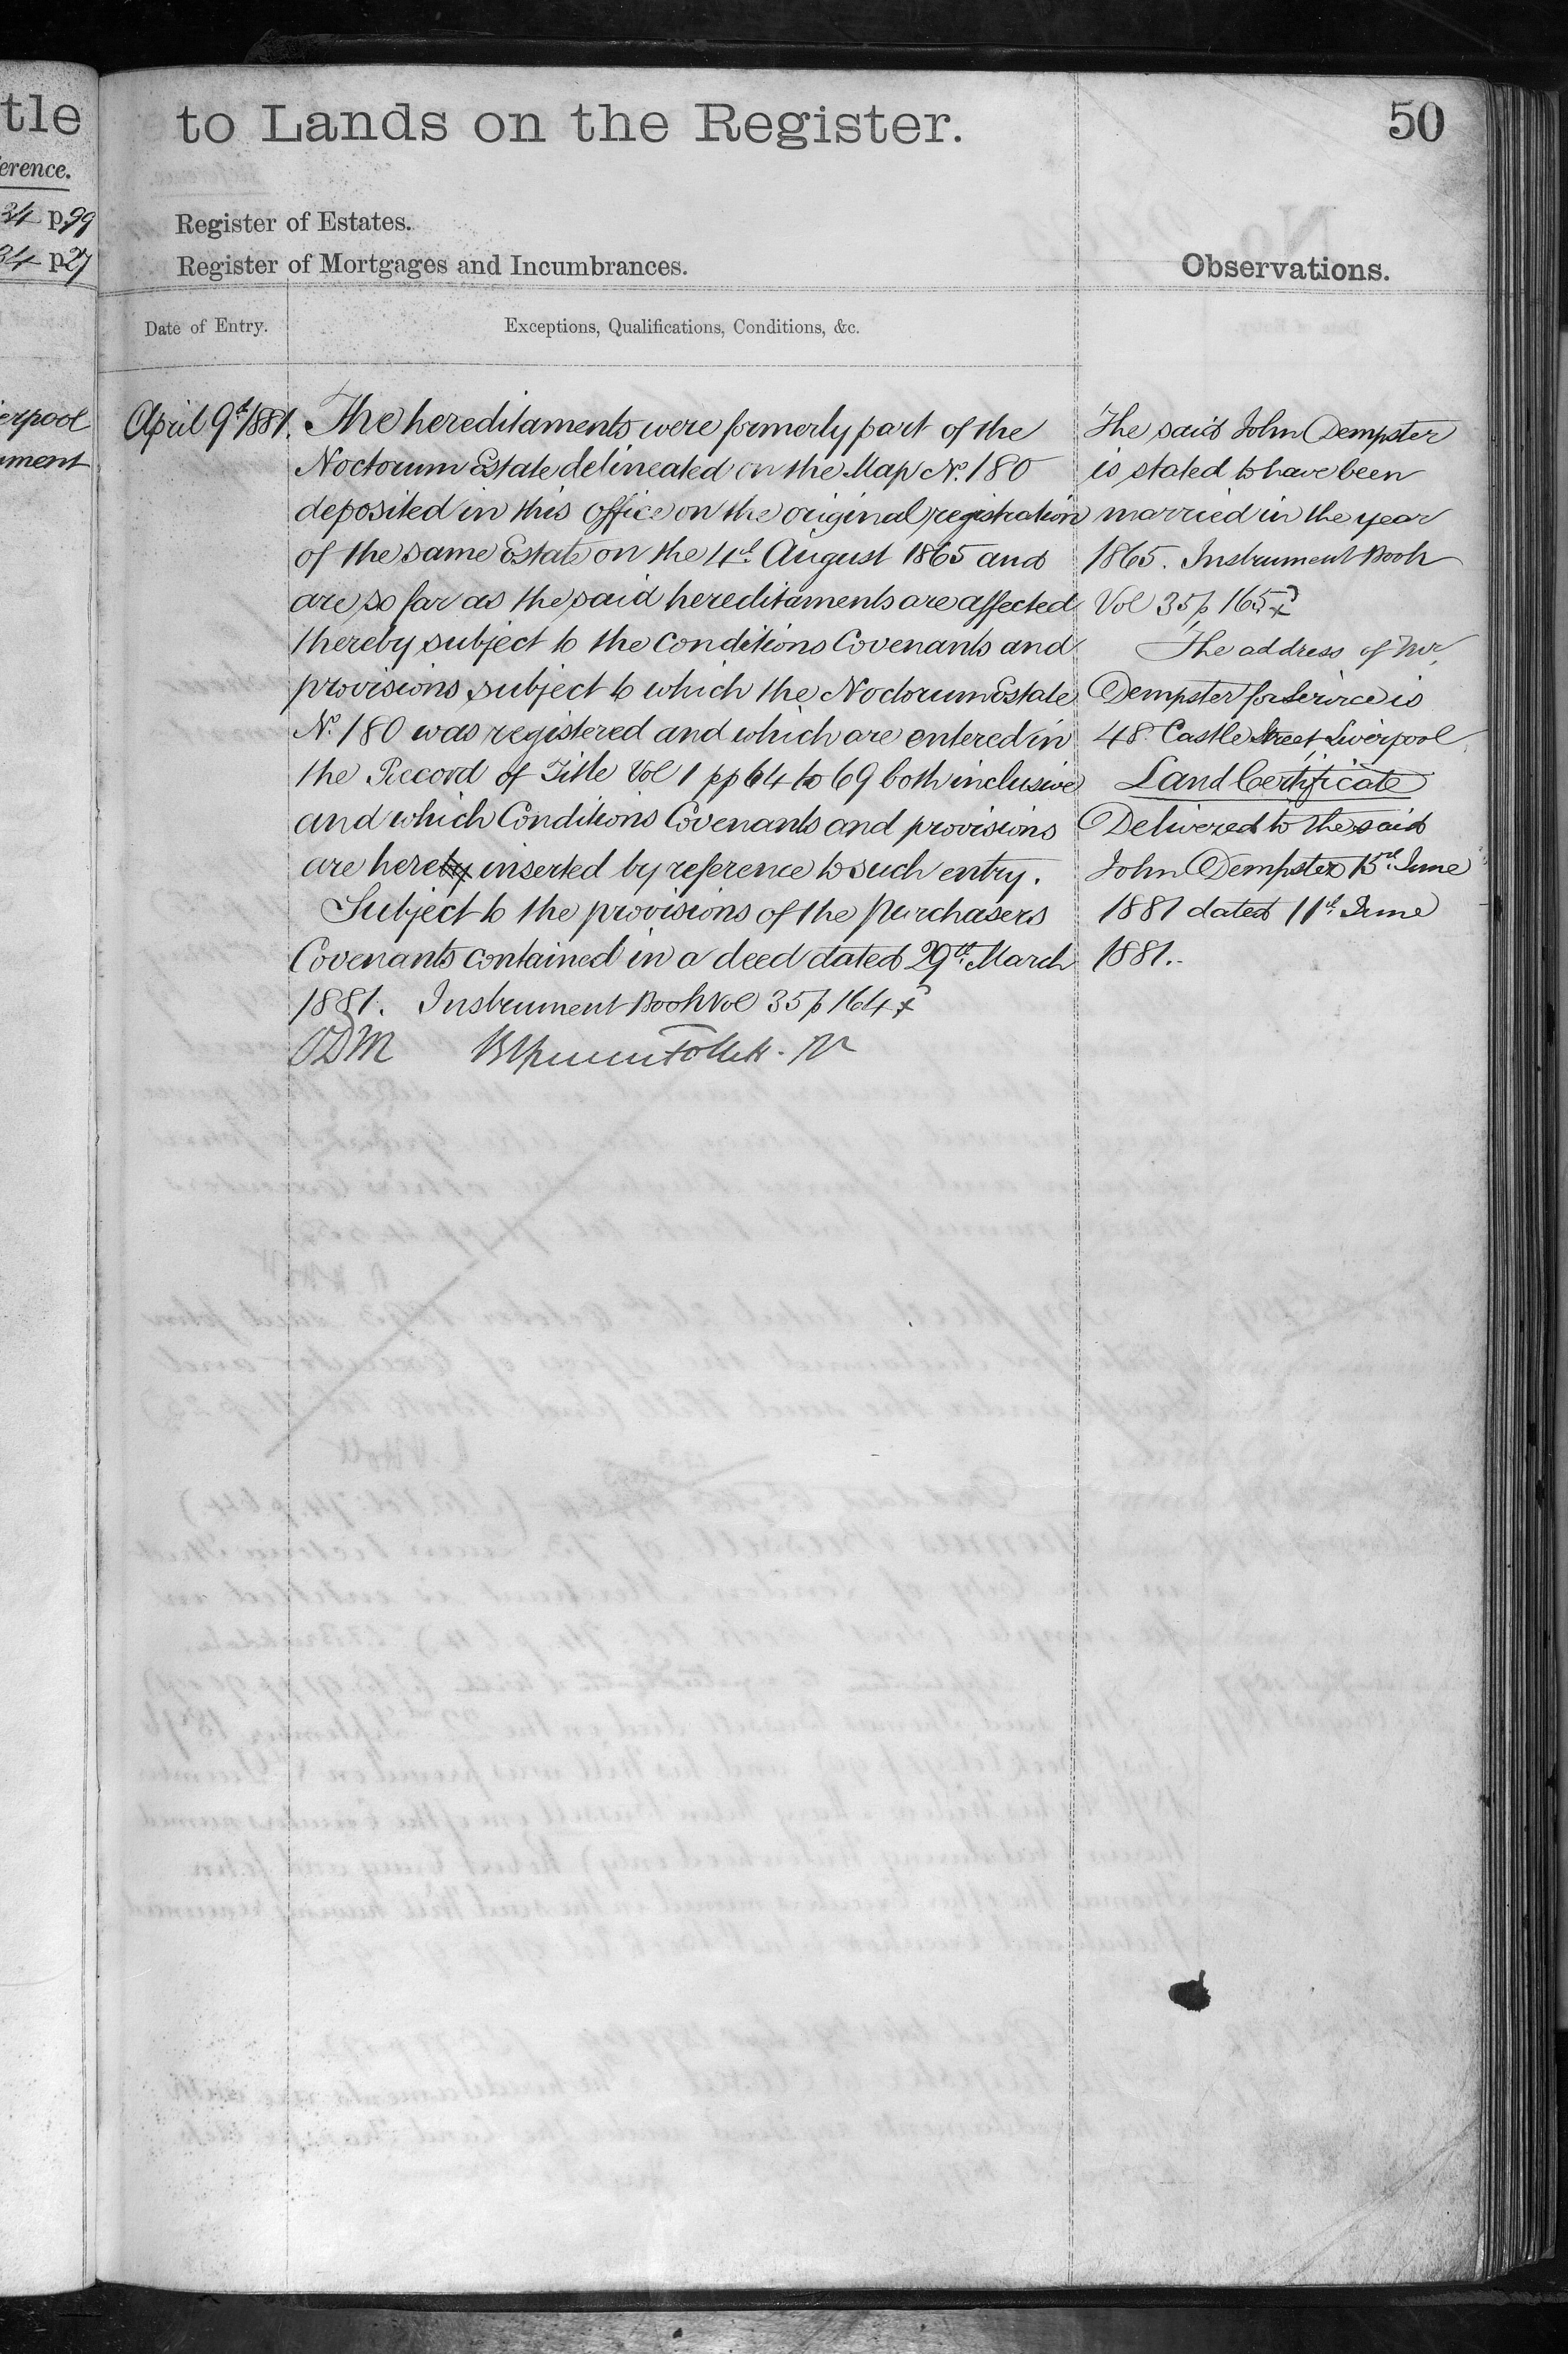 tle
erence.
34 p99
34 p27
erpool
ument
to Lands on the Register.
50
Register of Estates.
Register of Mortgages and Incumbrances.
Observations.
Date of Entry.
Exceptions, Qualifications, Conditions, &c.
April 9th 1881.
The hereditaments were formerly part of the
Noctorum Estate delineated on the Map No. 180
deposited in this Office on the original registration
of the same Estate on the 4th August 1865 and
are so far as the said hereditaments are affected
thereby subject to the conditions Covenants and
provisions subject to which the Noctorum Estate
No. 180 was registered and which are entered in
the Record of Title Vol 1 pp 64 to 69 both inclusive
and which Conditions Covenants and provisions
are hereby inserted by reference to such entry.
Subject to the provisions of the Purchasers
Covenants contained in a deed dated 29th March
1881. Instrument Book Vol 35 p 164
ODM
The said John Dempster
is stated to have been
married in the year
1865. Instrument Book
Vol 35 p 165
The address of Mr.
Dempster for Service is
48 Castle Street Liverpool
Land Certificate
Delivered to the said
John Dempster 15th June
1881 dated 11th June
1881.